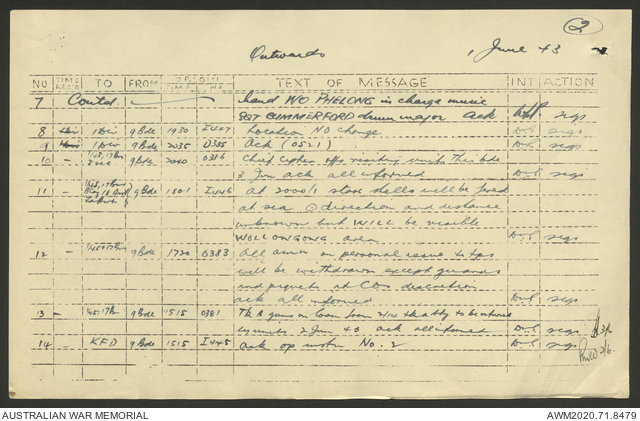 2
Outwards 1 June 43
NO TIME REC'D TO FROM ORIGIN TIME NO. TEXT OF MESSAGE INT ACTION
7 Contd band W/O PHELONG in charge music
SGT CUMMERFORD drum major ack sigs
8 1 Div 9 Bde 1930 I447 Location NO change sigs
9 1 Div 9 Bde 2035 0385 Ack (0521) sigs
10 - 9 Bde 2040 0386 Chief Cipher offr visiting units this bde
2 Jun ack all informed sigs
11 9 Bde 1801 I446 At 2000/1 star shells will be fired
at sea direction and distance
unknown but WILL be visible
WOLLONGONG area sigs
12 - 9 Bde 1720 0383 All amn on personal issue to tps
will be withdrawn except guards
and piquets at COs discretion
ack all informed sigs
13 - 9 Bde 1515 0381 Tk A guns on loan from to be returned
by units 2 Jun 43 ack all informed sigs
14 - KFD 9 Bde 1515 I445 ack op instn No. 2 sigs
2/6.
AUSTRALIAN WAR MEMORIAL
AWM2020.71.8479